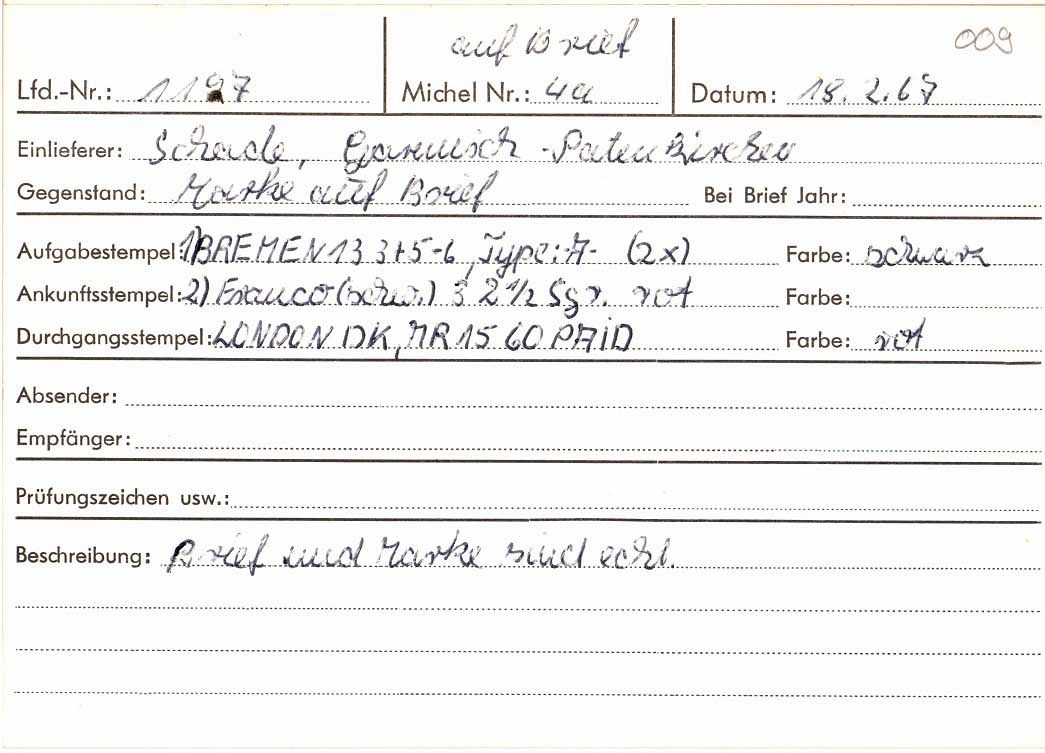 auf Brief 009
Lfd.-Nr.: 1197 Michel Nr.: 4a Datum: 18.2.67
Einlieferer: Schade, Garmisch-Patenkirchen
Gegenstand: Marke auf Brief Bei Brief Jahr:
Aufgabestempel: 1) BREMEN 13 3 + 5-6, Type: A- (2x) Farbe: schwarz
Ankunftsstempel: 2) Franco (schw.) 3 2 1/2 Sgr. rot Farbe:
Durchgangsstempel: LONDON DK, MR 15 60 PAID Farbe: rot
Absender:
Empfänger:
Prüfungszeichen usw.:
Beschreibung: Brief und Marke sind echt.